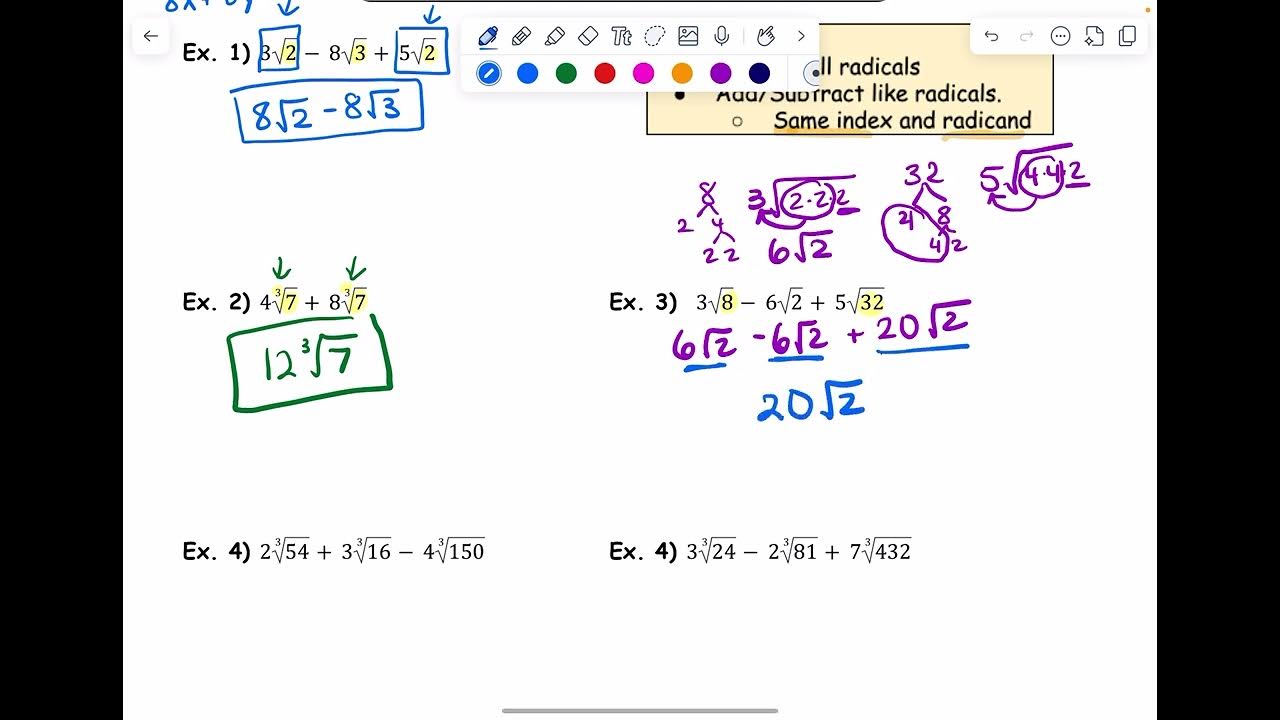 Ex. 1) 3√2 − 8√3 + 5√2
8√2 − 8√3
Tt
ll radicals
Add/Subtract like radicals.
Same index and radicand
8
2 4
2 2
3√2·2·2
6√2
32
4 8
4 2
5√4·4·2
Ex. 2) 4∛7 + 8∛7
12∛7
Ex. 3) 3√8 − 6√2 + 5√32
6√2 - 6√2 + 20√2
20√2
Ex. 4) 2∛54 + 3∛16 − 4∛150
Ex. 4) 3∛24 − 2∛81 + 7∛432